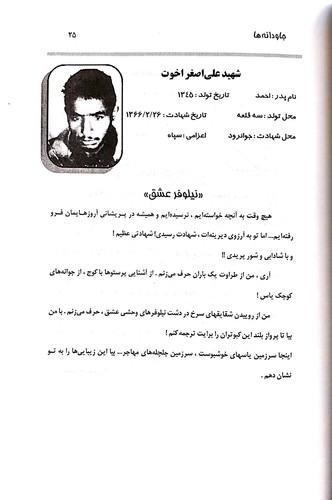 جاودانه‌ها
۲۵
شهید علی‌اصغر اخوت
نام پدر : احمد
تاریخ تولد : ۱۳۴۵
محل تولد : سه قلعه
تاریخ شهادت : ۱۳۶۶/۲/۲۶
محل شهادت : جوانرود
اعزامی : سپاه
«نیلوفر عشق»
هیچ وقت به آنچه خواسته‌ایم ، نرسیده‌ایم و همیشه در پریشانی آرزوهایمان فرو
رفته‌ایم... اما تو به آرزوی دیرینه‌ات ، شهادت رسیدی! شهادتی عظیم !
و با شادابی و شور پریدی !!
آری ، من از طراوت یک باران حرف می‌زنم . از آشنایی پرستوها با کوچ ، از جوانه‌های
کوچک یاس !
من از روییدن شقایقهای سرخ در دشت نیلوفرهای وحشی عشق ، حرف می‌زنم . با من
بیا تا پرواز بلند این کبوتران را برایت ترجمه کنم !
اینجا سرزمین یاسهای خوشبوست ، سرزمین چلچله‌های مهاجر... بیا این زیبایی‌ها را به تو
نشان دهم .